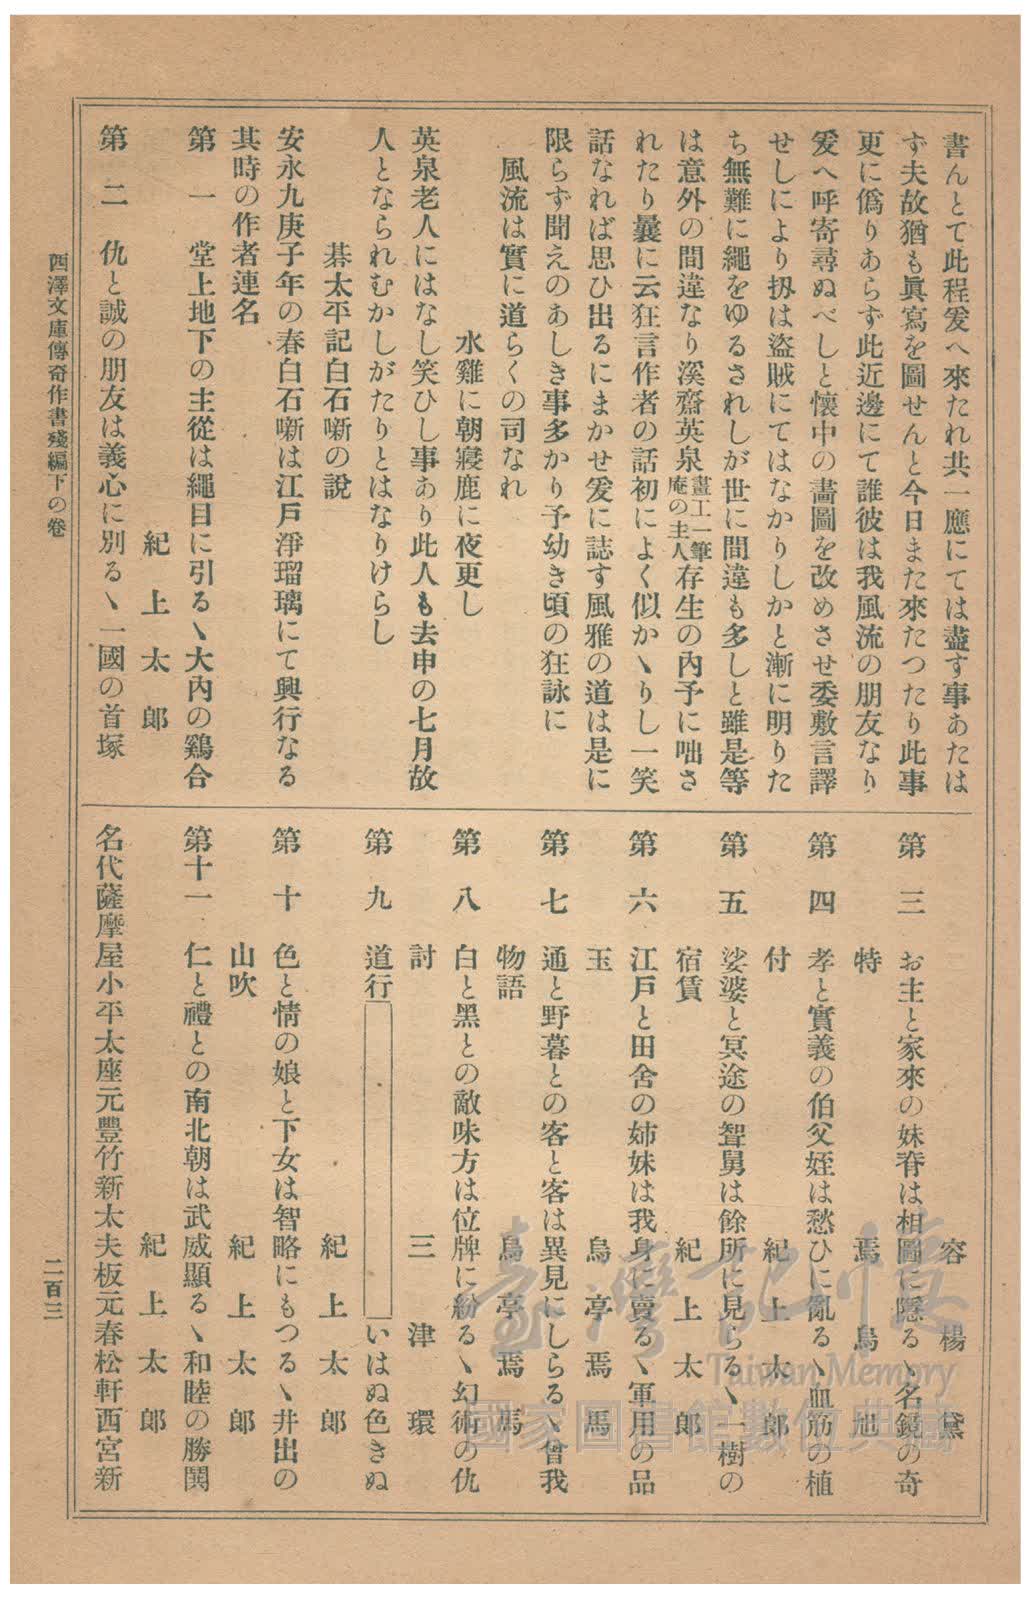 書んとて此程爰へ來たれ共一應にては盡す事あたは
ず夫故猶も眞寫を圖せんと今日また來たつたり此事
更に僞りあらず此近邊にて誰彼は我風流の朋友なり
爰へ呼寄尋ぬべしと懷中の畵圖を改めさせ委敷言譯
せしにより扨は盜賊にてはなかりしかと漸に明りた
ち無難に繩をゆるされしが世に間違も多しと雖是等
は意外の間違なり溪齋英泉畫工一筆庵の主人存生の內予に咄さ
れたり曩に云狂言作者の話初によく似かヽりし一笑
話なれば思ひ出るにまかせ爰に誌す風雅の道は是に
限らず聞えのあしき事多かり予幼き頃の狂詠に
風流は實に道らくの司なれ
水雞に朝寢鹿に夜更し
英泉老人にはなし笑ひし事あり此人も去申の七月故
人となられむかしがたりとはなりけらし
碁太平記白石噺の說
安永九庚子年の春白石噺は江戶淨瑠璃にて興行なる
其時の作者連名
第一 堂上地下の主從は繩目に引るヽ大內の鷄合
紀上太郎
第二 仇と誠の朋友は義心に別るヽ一國の首塚
容楊黛
第三 お主と家來の妹脊は相圖に隱るヽ名鏡の奇
特 焉烏旭
第四 孝と實義の伯父姪は愁ひに亂るヽ血筋の植
付 紀上太郎
第五 娑婆と冥途の聟舅は餘所に見らるヽ一樹の
宿賃 紀上太郎
第六 江戶と田舍の姉妹は我身に賣るヽ軍用の品
玉 烏亭焉馬
第七 通と野暮との客と客は異見にしらるヽ曾我
物語 烏亭焉馬
第八 白と黑との敵味方は位牌に紛るヽ幻術の仇
討 三津環
第九 道行 いはぬ色きぬ
紀上太郎
第十 色と情の娘と下女は智略にもつるヽ井出の
山吹 紀上太郎
第十一 仁と禮との南北朝は武威顯るヽ和睦の勝鬨
紀上太郎
名代薩摩屋小平太座元豐竹新太夫板元春松軒西宮新
西澤文庫傳奇作書殘編下の卷
二百三
臺灣記憶
Taiwan Memory
國家圖書館數位典藏